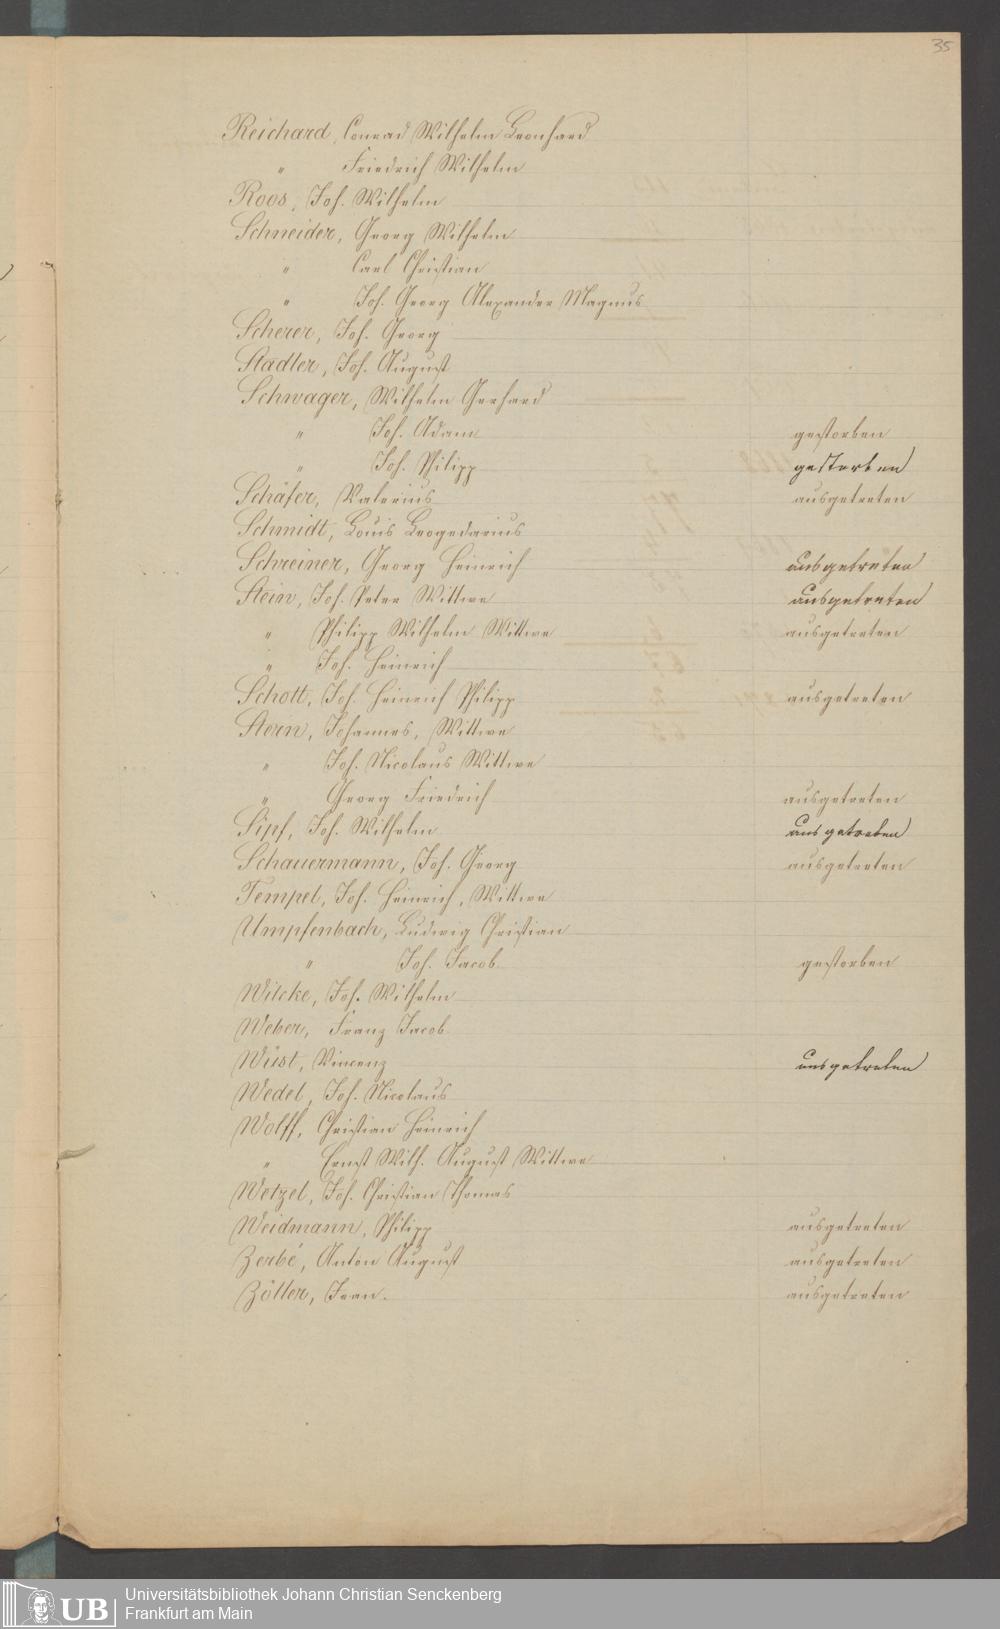 35
Reichard, Conrad Wilhelm Leonhard
" Friedrich Wilhelm
Roos, Joh. Wilhelm
Schneider, Georg Wilhelm
" Carl Christian
" Joh. Georg Alexander Magnus
Scherer, Joh. Georg
Stadler, Joh. August
Schwager, Wilhelm Gerhard
" Joh. Adam gestorben
" Joh. Philipp gestorben
Schäfer, Valerius ausgetreten
Schmidt, Louis Leogedarius
Schreiner, Georg Heinrich ausgetreten
Stein, Joh. Peter Wittwe ausgetreten
" Philipp Wilhelm Wittwe ausgetreten
" Joh. Heinrich
Schott, Joh. Heinrich Philipp ausgetreten
Stern, Johannes, Wittwe
" Joh. Nicolaus Wittwe
" Georg Friedrich ausgetreten
Sipf, Joh. Wilhelm ausgetreten
Schauermann, Joh. Georg ausgetreten
Tempel, Joh. Heinrich, Wittwe
Umpfenbach, Ludwig Christian
" Joh. Jacob gestorben
Wilcke, Joh. Wilhelm
Weber, Franz Jacob
Wüst, Vincenz ausgetreten
Wedel, Joh. Nicolaus
Wolff, Christian Heinrich
" Ernst Wilh. August Wittwe
Wetzel, Joh. Christian Thomas
Weidmann, Philipp ausgetreten
Zerbé, Anton August ausgetreten
Zöller, Jean. ausgetreten
UB
Universitätsbibliothek Johann Christian Senckenberg
Frankfurt am Main